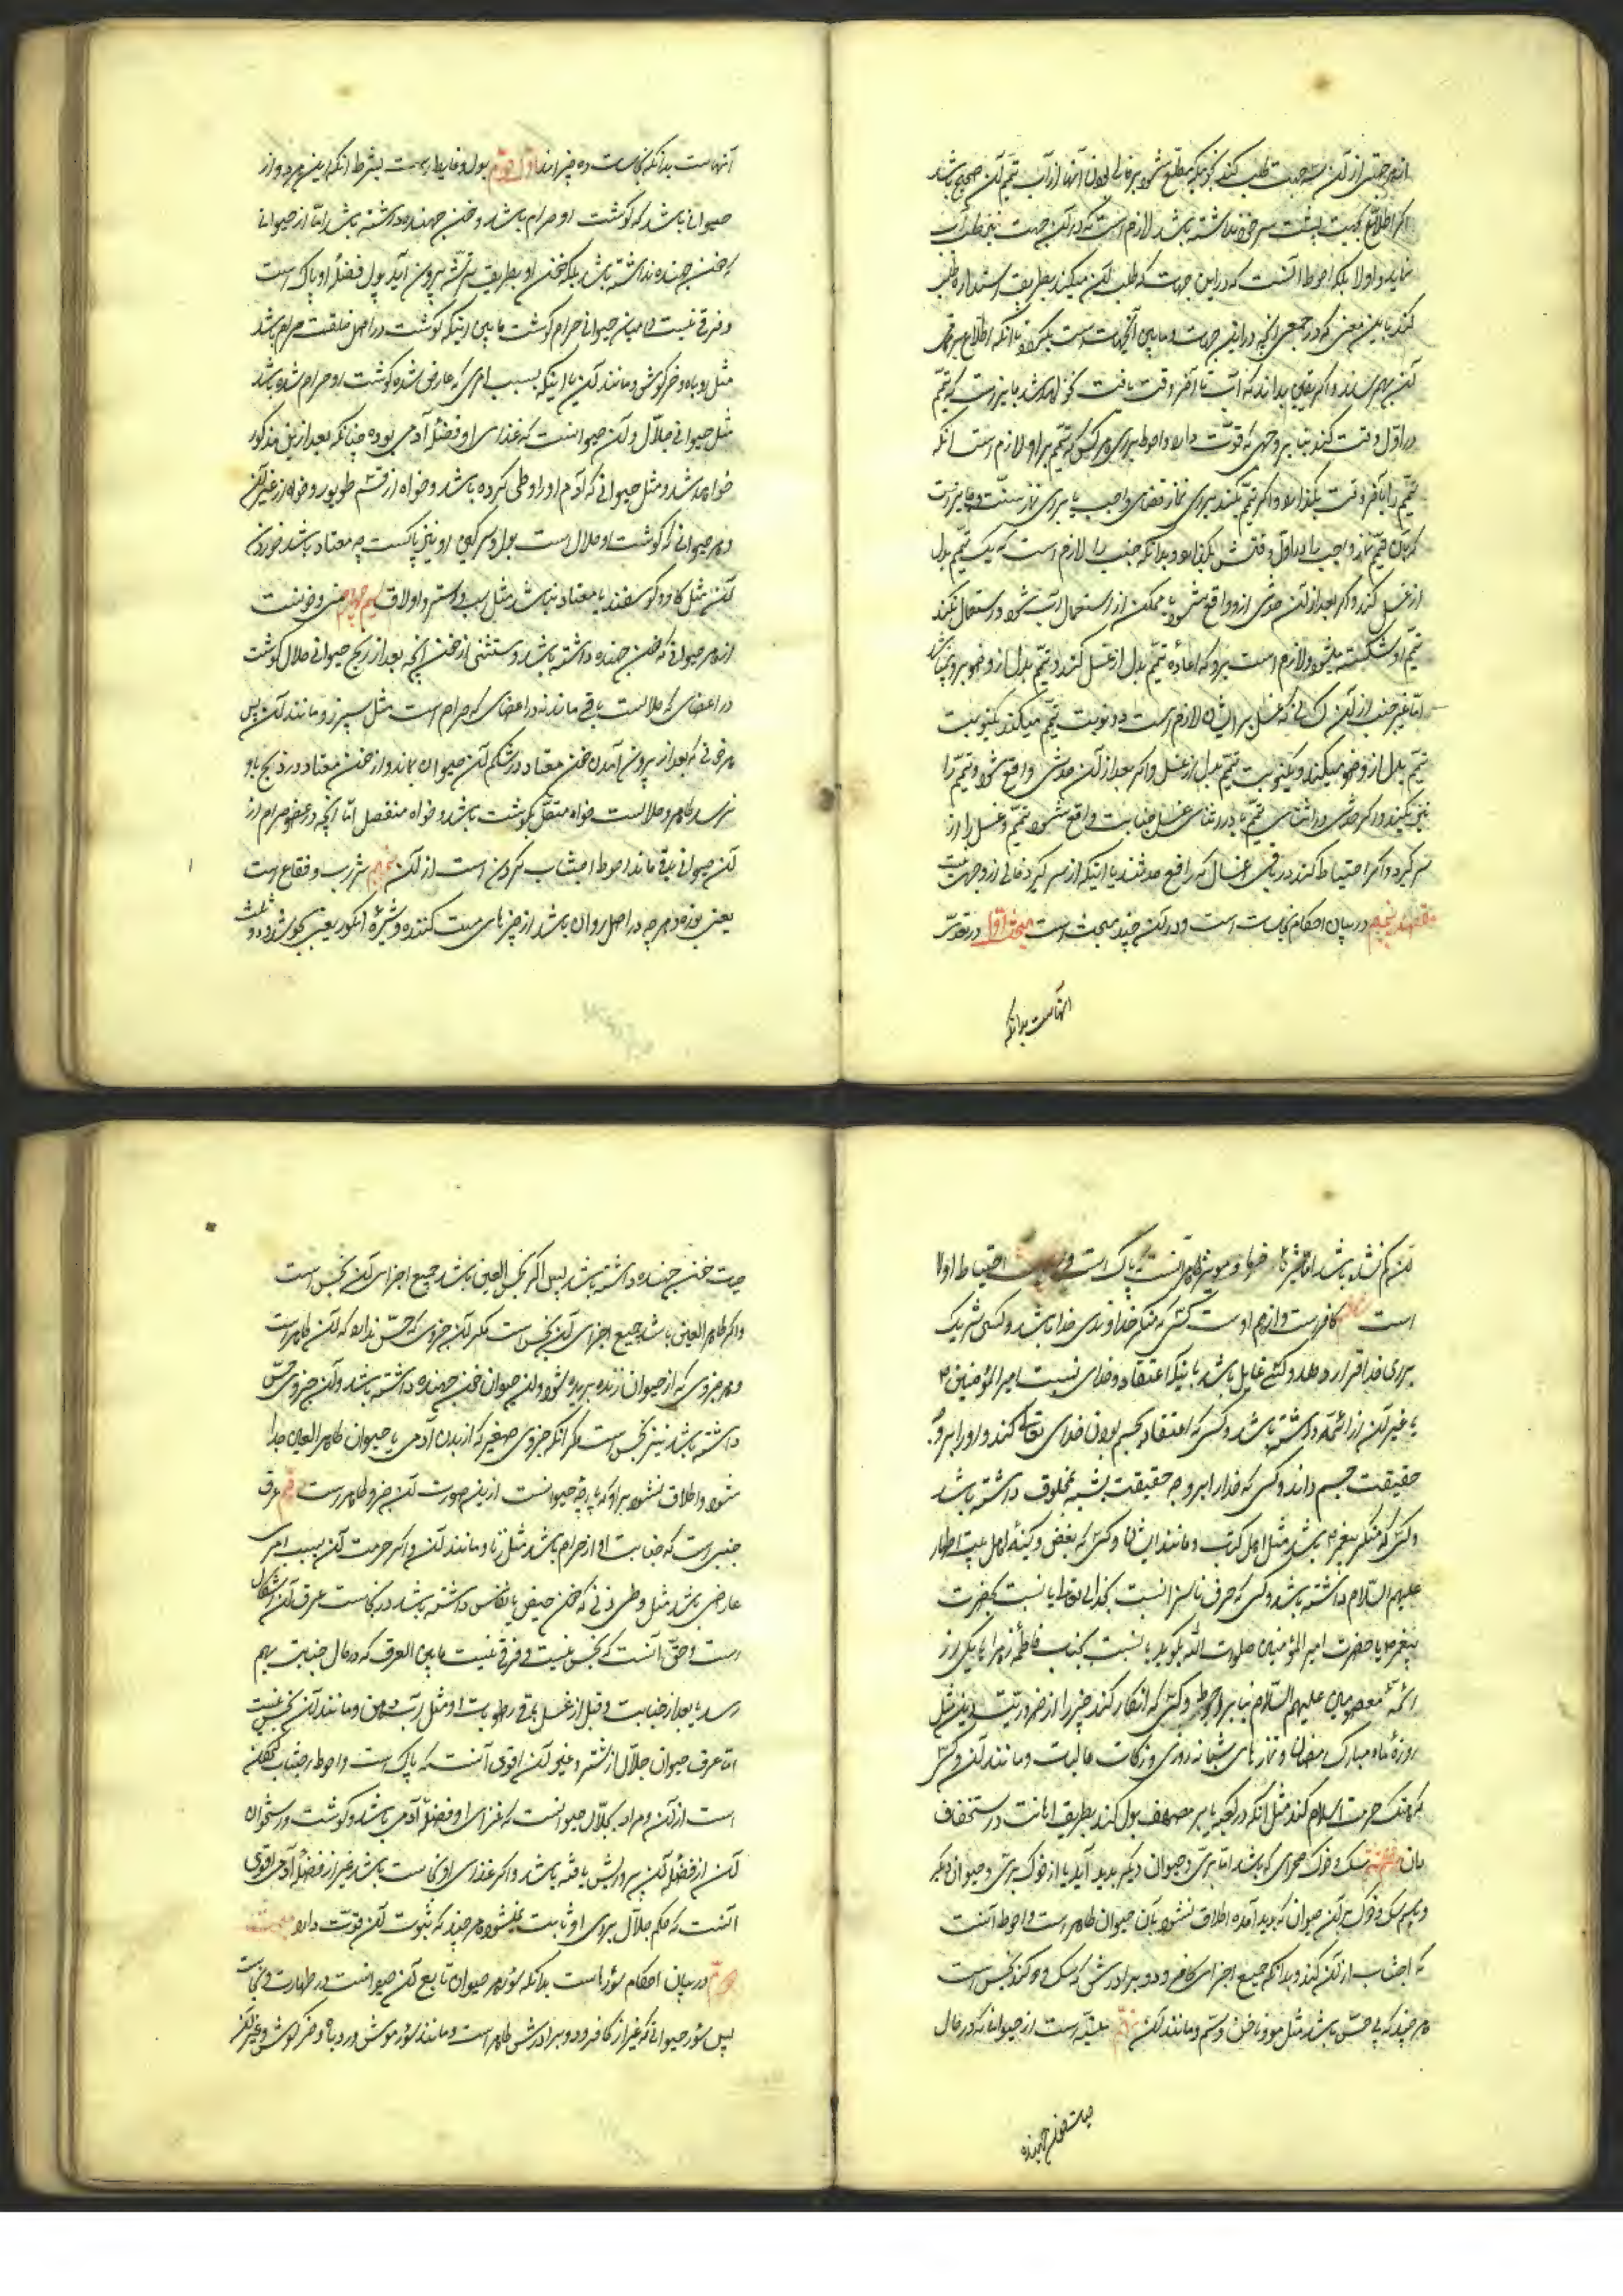 از هر جهتی از آن سه جهت طلب کند
اگر اطلاع بجهت پشت سر خود نداشته باشد لازم است که در آن جهت نیز طلب آب
نماید و اولا بلکه احوط آنست که در این جهت که طلب آن میکند بطریق استداره طلب
کند باین معنی که در جمیع آنچه در این جهت و مابین آنجهات است بگردد تا آنکه اطلاع بر تمام
آن بهم رساند و اگر یقین بداند که آب تا آخر وقت یافت نخواهد شد جایز است که تیمم
در اول وقت کند بنا بر وجهی که قوت دارد و احوط برای هر کس که تیمم بر او لازم است آنکه
تیمم را تا آخر وقت بگذارد و اگر تیمم بکند برای نماز قضای واجب یا برای نماز سنت جایز است
که بآن تیمم نماز واجب را در اول وقتش بگذارد و بدانکه جنب را لازم است که یک تیمم بدل
از غسل کند و اگر بعد از آن حدثی ازو واقع شود یا ممکن از استعمال آب شود و استعمال نکند
تیمم او شکسته میشود و لازم است برو که اعاده تیمم بدل از غسل کند و تیمم بدل از وضو برو نمیباشد
اما غیر جنب از آن کسانی که غسل بر ایشان لازم است دو نوبت تیمم میکند یکنوبت
تیمم بدل از وضو میکند و یکنوبت تیمم بدل از غسل و اگر بعد از آن حدثی واقع شود تیمم را
نیز میکند و اگر حدثی در اثنای تیمم یا در اثنای غسل جنابت واقع شود تیمم و غسل را از
سر گیرد و اگر احتیاط کند در باقی اغسال که رافع حدثند با اینکه از سر گیرد خالی از وجهی نیست
مقصد پنجم در بیان احکام نجاسات است و در آن چند مبحث است مبحث اول در تعداد
آنهاست بدانکه
آنهاست بدانکه نجاسات ده چیزاند اول و دوم بول و غایط است بشرط آنکه این هر دو از
حیوانی باشد که گوشت او حرام باشد و خون جهنده داشته باشد اما از حیوانی
که خون جهنده نداشته باشد بلکه خون او بطریق ترشّه بیرون آید بول و فضله او پاک است
و فرقی نیست در میان حیوانی حرام گوشت مابین اینکه گوشت در اصل خلقت حرام باشد
مثل روباه و خرگوش و مانند آن یا اینکه بسبب امری که عارض شده گوشت او حرام شده باشد
مثل حیوانی جلال و آن حیوانیست که غذای او فضله آدمی بوده چنانکه بعد ازین مذکور
خواهد شد و مثل حیوانی که آدم او را وطی کرده باشد و خواه از قسم طیور و خواه از غیر آن
و هر حیوانی که گوشت او حلال است بول و سرگین او نیز پاکست چه معتاد باشد خوردن
آن مثل گاو و گوسفند یا معتاد نباشد مثل اسب و استر و اولاق سیم و چهارم منی و خونست
از هر حیوانی که خون جهنده داشته باشد و مستثنی از خون آنچه بعد از ذبح حیوانی حلال گوشت
در اعضای که حلالست باقی ماند نه در اعضای که حرام است مثل سپرز و مانند آن پس
هر خونی که بعد از بیرون آمدن خون معتاد در شکم آن حیوان بماند و از خون معتاد در ذبح باو
نرسد طاهر و حلالست خواه متصل بگوشت باشد و خواه منفصل اما آنچه در عضو حرام از
آن حیوانی باقی ماند احوط اجتناب کردن است از آن پنجم شراب و فقاع است
یعنی بوزه و هر چه در اصل روان باشد از چیزهای مست کننده و شیره انگور یعنی بجوشد و دو ثلث
آن کم نشده باشد اما شیره خرما و مویز ظاهر آنست که پاک است احتیاط اولا
است کافر است و از هم او ست کسی که منکر خداوندی خدا باشد و کسی شریک
برای خدا قرار دهد و کسی غالی باشد با اینکه اعتقاد و خدای نسبت امیر المؤمنین ع
یا غیر آن از ائمه داشته باشد و کسی که اعتقاد بجسم بودن خدای تعالی کند و او را بر وجه
حقیقت جسم داند و کسی که خدا را بر وجه حقیقت شبیه بمخلوق داشته باشد
و کسی که منکر پیغمبر ص باشد مثل اهل کتاب و مانند ایشان و کسی که بغض و کینه اهل بیت اطهار
علیهم السلام داشته باشد و کسی که حرف ناسزا نسبت بخدای تعالی یا نسبت بحضرت
پیغمبر ص یا حضرت امیر المؤمنین صلوات الله بگوید یا نسبت بجناب فاطمه زهرا یا یکی از
ائمه معصومین علیهم السلام بنا بر احوط و کسی که انکار کند چیزی را از ضروریات دین مثل
روزه ماه مبارک رمضان و نمازهای شبانه روزی و زکات مالیات و مانند آن و کسی
که هتک حرمت اسلام کند مثل آنکه در کعبه یا بر مصحف بول کند بطریق اهانت و استخفاف
بآن هفتم سگ و خوک صحرای که باشد اما بری و حیوان دیگر پدید آید یا از خوک بری و حیوان دیگر
و اسم سگ و خوک بر آن حیوان که پدید آمده اطلاق نشود پس آن حیوان طاهر است و احوط آنست
که اجتناب از آن کند و بدانکه جمیع اجزای کافر و دو برادرش که سگ و خوکند نجس است
هر چند که بی حس باشد مثل مو و ناخن و سم و مانند آن نهم میته است از حیوانی که در حال
حیات خون جهنده
حیات خون جهنده داشته باشد پس اگر نجس العین باشد جمیع اجزای آن نجس است
و اگر طاهر العین باشد جمیع اجزای آن نجس است مگر آن جزوی که حس ندارد که آن طاهر است
و هر جزوی که از حیوان زنده بریده شود و این حیوان خون جهنده داشته باشد و آن جزوی حس
داشته باشد نیز نجس است مگر آنکه جزوی صغیر که از بدن آدمی یا حیوان طاهر العین جدا
شود و اطلاق نشود بر او که پارچه حیوانست ازین صورت آن جزو طاهر است دهم عرق
جنبی است که جنابت او از حرام باشد مثل زنا و مانند آن و اگر حرمت آن بسبب امری
عارضی باشد مثل وطی زنی که خون حیض یا نفاس داشته باشد در نجاست عرق آن اشکال
است و حق آنست که نجس نیست و فرقی نیست مابین العرق که در حال جنابت بهم
رسد یا بعد از جنابت و قبل از غسل باقی رطوبات او مثل آب دهن و مانند آن نجس نیست
اما عرق حیوان جلال از شتر و غیر آن اقوی آنست که پاک است و احوط اجتناب کردن
است از آن و مراد بجلال حیوانیست که غذای او فضله آدمی باشد و گوشت و استخوان
آن از فضله آن پرورش یافته باشد و اگر غذای او نجاست باشد غیر از فضله آدمی اقوی
آنست که حکم جلال برای او ثابت نمیشود هر چند که ثبوت آن قوت دارد مبحث
دوم در بیان احکام سؤرها است بدانکه سؤر هر حیوان تابع آن حیوانست در طهارت و نجاست
پس سؤر حیوانی که غیر از کافر و دو برادرش طاهر است و مانند سؤر موش و روباه و خرگوش و غیر آن